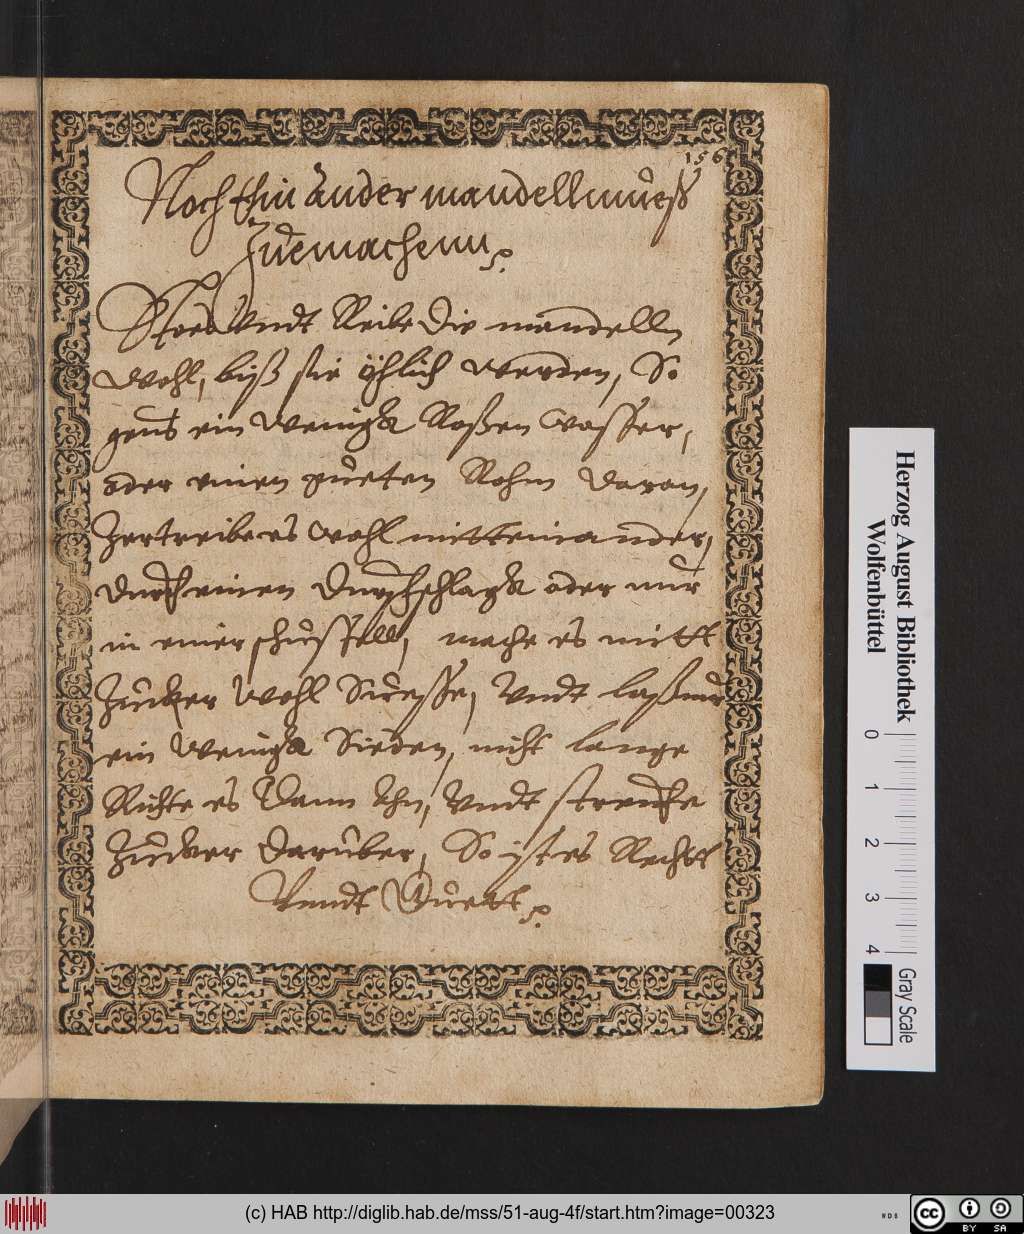 156
Noch Ein Ander mandellmueß
Zuemachenn
Stoeß Undt Reibe die mandelln
Wohl, biß sie öhlich werden, So
geus ein Wenigk Roßen Wasser,
oder einen gueten Rohm daran,
Zertreibe es Wohl mitteinander,
durch einen durchschlagk oder nur
in einer schüssell, mache es mitt
Zucker Wohl Süesse, Undt laß nur
ein Wenigk Sieden, nicht lange
Richte es Dann Ahn, Undt streuhe
Zucker darüber, So ist es Recht
Unndt Guett
Herzog August Bibliothek
Wolfenbüttel
0 1 2 3 4
Gray Scale
(c) HAB http://diglib.hab.de/mss/51-aug-4f/start.htm?image=00323
WDB
cc
BY SA